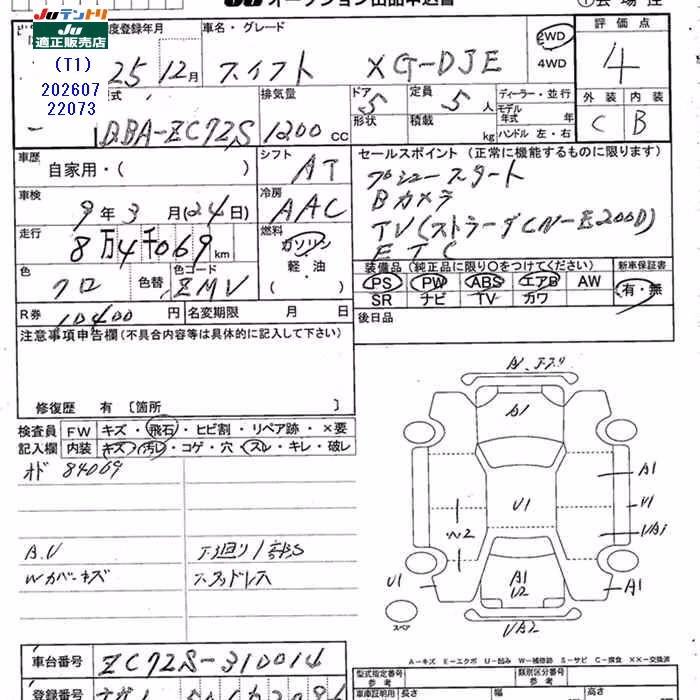 JU オークション出品申込書 ①会場控
JUテントリ
JU適正販売店
(T1)
202607
22073
度登録年月 車名・グレード 評価点
25 12月 スイフト XG-DJE 2WD 4WD 4
式 排気量 ドア 定員 ディーラー・並行 外装 内装
DBA-ZC72S 1200 CC 5 5 人 モデル年式 年 C B
形状 積載 kg ハンドル 左・右
車歴 シフト セールスポイント (正常に機能するものに限ります)
自家用・( ) AT プシュースタート
車検 冷房 Bカメラ
9年3月(24日) AAC TV(ストラーダCN-E200D)
走行 燃料 ETC
8万4千069km ガソリン
軽・油
( )
色 色替 色コード 装備品(純正品に限り○をつけてください) 新車保証書
クロ ZMV PS PW ABS エアB AW 有・無
SR ナビ TV カワ
R券 10400円 名変期限 月 日 後日品
注意事項申告欄(不具合内容等は具体的に記入して下さい)
修復歴 有 〔箇所 〕
検査員 FW キズ・飛石・ヒビ割・リペア跡・×要
記入欄 内装 キズ・汚レ・コゲ・穴・スレ・キレ・破レ
オド 84069
A.U 下廻り1部S
Wカバーキズ スタッドレス
A1
A1
U1
U1
A1
U2
U1
A1
スペア
A－キズ E－エクボ U－凹み W－補修跡 S－サビ C－腐食 ××－交換済
車台番号 ZC72S-310014
登録番号
型式指定番号 参考
類別区分番号 参考
車庫証明用 長さ 幅 高さ